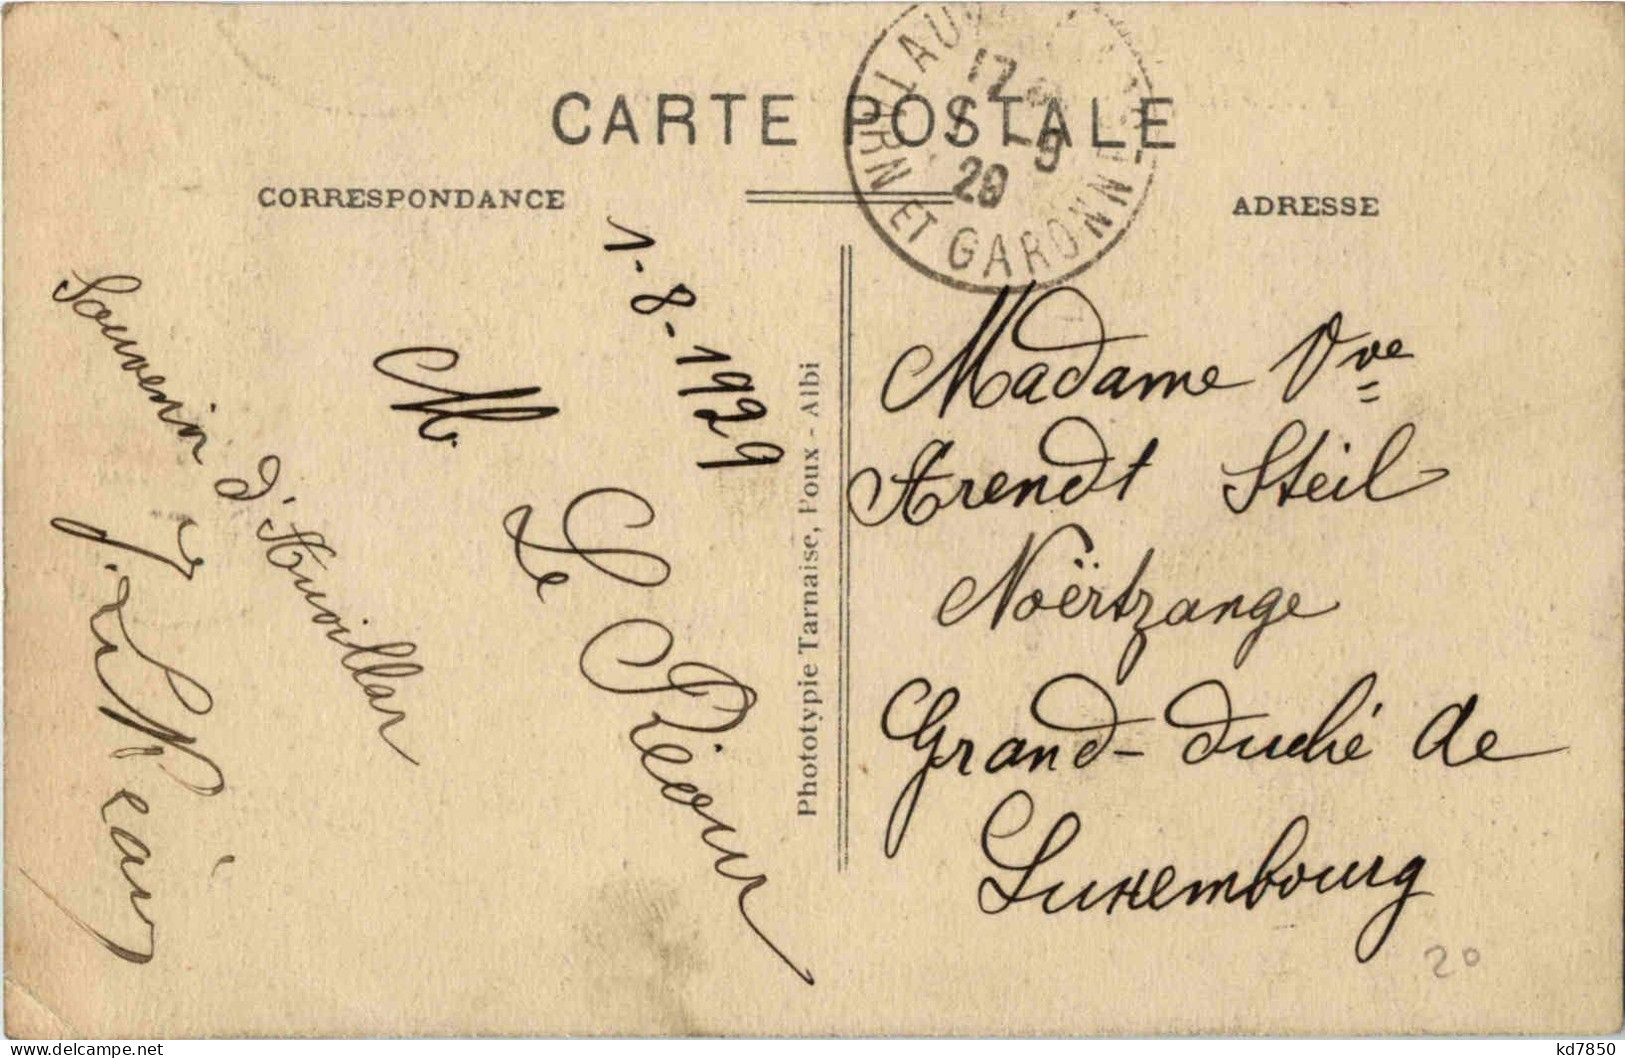 CARTE POSTALE
CORRESPONDANCE
ADRESSE
17
29
TARN ET GARONNE
1-8-1929
Souvenir d'Auvillar
M. Le Récour
Phototypie Tarnaise, Poux - Albi
Madame Vve
Arendt Steil
Noërtzange
Grand-duché de
Luxembourg
20
delcampe.net
kd7850